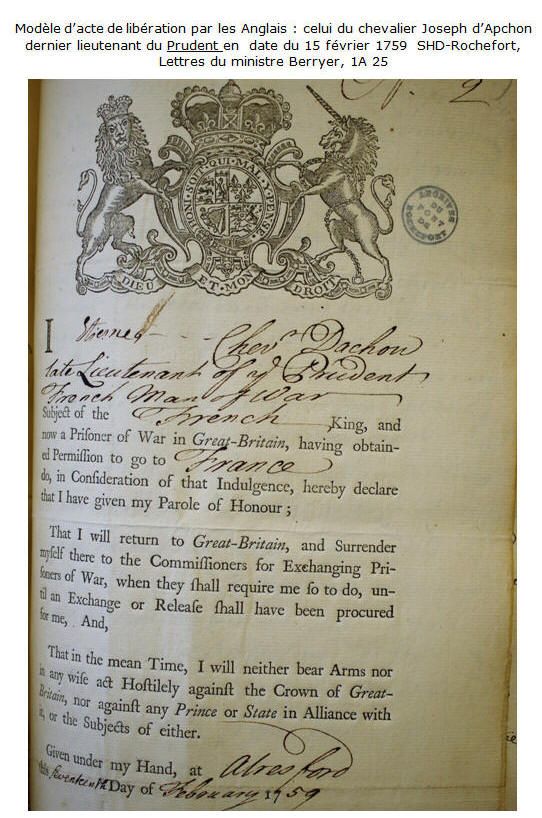 Modèle d’acte de libération par les Anglais : celui du chevalier Joseph d’Apchon
dernier lieutenant du Prudent en date du 15 février 1759 SHD-Rochefort,
Lettres du ministre Berryer, 1A 25
HONI·SOIT·QUI·MAL·Y·PENSE
DIEU ET·MON DROIT
ARCHIVES DU PORT DE ROCHEFORT
I Chevr Dachon
late Lieutenant of ye Prudent
French Man of War
Subject of the French King, and
now a Priſoner of War in Great-Britain, having obtain-
ed Permiſſion to go to France
do, in Conſideration of that Indulgence, hereby declare
that I have given my Parole of Honour;
That I will return to Great-Britain, and Surrender
myſelf there to the Commiſſioners for Exchanging Pri-
ſoners of War, when they ſhall require me ſo to do, un-
til an Exchange or Releaſe ſhall have been procured
for me, And,
That in the mean Time, I will neither bear Arms nor
in any wiſe act Hoſtilely againſt the Crown of Great-
Britain, nor againſt any Prince or State in Alliance with
it, or the Subjects of either.
Given under my Hand, at Alresford
this ſeventeenth Day of February 1759